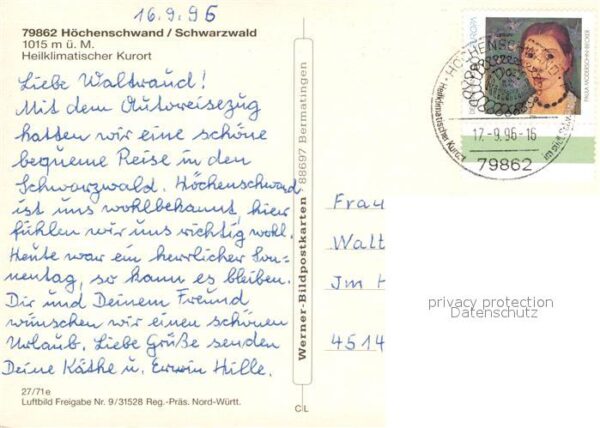 16.9.96
79862 Höchenschwand / Schwarzwald
1015 m ü. M.
Heilklimatischer Kurort
Liebe Waltraud!
Mit dem Autoreisezug
hatten wir eine schöne
bequeme Reise in den
Schwarzwald. Höchenschwand
ist uns wohlbekannt, hier
fühlen wir uns richtig wohl.
Heute war ein herrlicher Son-
nentag, so kann es bleiben.
Dir und Deinem Freund
wünschen wir einen schönen
Urlaub. Liebe Grüße senden
Deine Käthe u. Erwin Hille.
27/71e
Luftbild Freigabe Nr. 9/31528 Reg.-Präs. Nord-Württ.
Werner-Bildpostkarten · 88697 Bermatingen
CL
EUROPA
PAULA MODERSOHN-BECKER
HÖCHENSCHWAND
Heilklimatischer Kurort
17.-9.96-16
79862
Frau
Walt
Im H
4514
privacy protection
Datenschutz